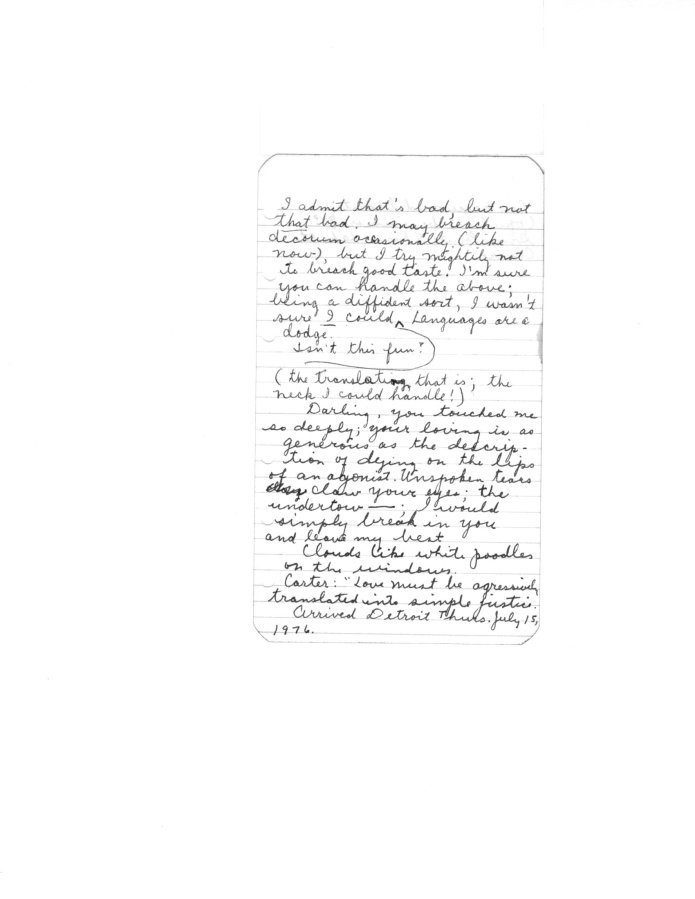 I admit that's bad, but not
that bad. I may breach
decorum ocassionally, (like
now), but I try mightily not
to breach good taste. I'm sure
you can handle the above;
being a diffident sort, I wasn't
sure I could. Languages are a
dodge.
Isn't this fun?
(the translating, that is; the
neck I could handle!)
Darling, you touched me
so deeply; your loving is as
generous as the descrip-
tion of dying on the lips
of an agonist. Unspoken tears
claw your eyes; the
undertow —; I would
simply break in you
and leave my best
Clouds like white poodles
on the windows.
Carter: "Love must be agressively
translated into simple justice.
Arrived Detroit Thurs. July 15,
1976.